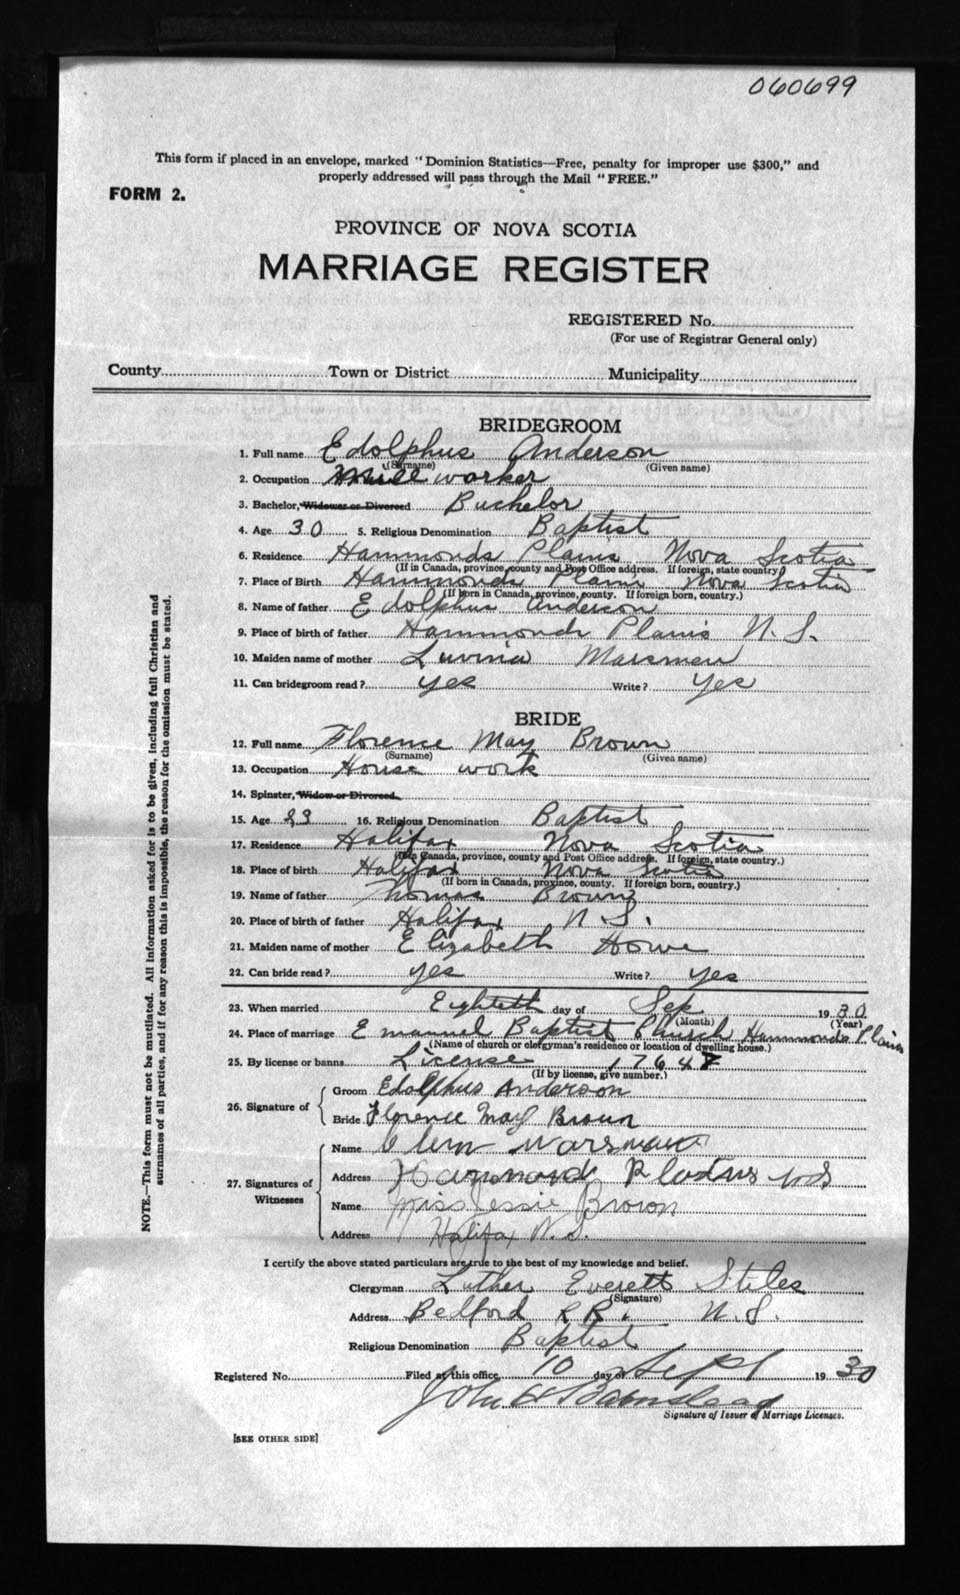 060699
This form if placed in an envelope, marked "Dominion Statistics—Free, penalty for improper use $300," and
properly addressed will pass through the Mail "FREE."
FORM 2.
PROVINCE OF NOVA SCOTIA
MARRIAGE REGISTER
REGISTERED No.
(For use of Registrar General only)
County Town or District Municipality
BRIDEGROOM
1. Full name Edolphus Anderson
(Surname) (Given name)
2. Occupation worker
3. Bachelor, Widower or Divorced Bachelor
4. Age 30 5. Religious Denomination Baptist
6. Residence Hammonds Plains Nova Scotia
(If in Canada, province, county and Post Office address. If foreign, state country.)
7. Place of Birth Hammonds Plains Nova Scotia
(If born in Canada, province, county. If foreign born, country.)
8. Name of father Edolphus Anderson
9. Place of birth of father Hammonds Plains N.S.
10. Maiden name of mother Luvina Marsmen
11. Can bridegroom read? yes Write? yes
BRIDE
12. Full name Florence May Brown
(Surname) (Given name)
13. Occupation House work
14. Spinster, Widow or Divorced
15. Age 16. Religious Denomination Baptist
17. Residence Halifax Nova Scotia
(If in Canada, province, county and Post Office address. If foreign, state country.)
18. Place of birth Halifax Nova Scotia
(If born in Canada, province, county. If foreign born, country.)
19. Name of father Thomas Brown
20. Place of birth of father Halifax N.S.
21. Maiden name of mother Elizabeth Howe
22. Can bride read? yes Write? yes
23. When married Eighteth day of Sep 1930.
(Month) (Year)
24. Place of marriage Emanuel Baptist Church Hammonds Plains
(Name of church or clergyman's residence or location of dwelling house.)
25. By license or banns License 17647
(If by license, give number.)
26. Signature of
Groom Edolphus Anderson
Bride Florence May Brown
27. Signatures of Witnesses
Name Clem
Address Hammonds Plains NS
Name Miss Jessie Brown
Address Halifax N.S.
I certify the above stated particulars are true to the best of my knowledge and belief.
Clergyman Luther Everett Stiles
(Signature)
Address Bedford R R 1 N.S.
Religious Denomination Baptist
Registered No. Filed at this office 10 day of Sept 1930
John H Barnstead
Signature of Issuer of Marriage Licenses.
[SEE OTHER SIDE]
NOTE.—This form must not be mutilated. All information asked for is to be given, including full Christian and
surnames of all parties, and if for any reason this is impossible, the reason for the omission must be stated.